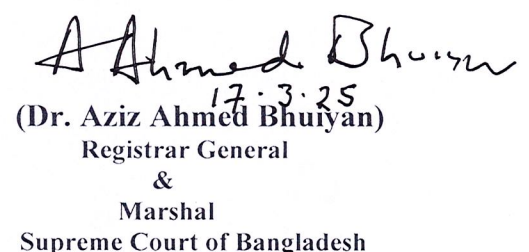 A Ahmed Bhuiyan
17.3.25
(Dr. Aziz Ahmed Bhuiyan)
Registrar General
&
Marshal
Supreme Court of Bangladesh